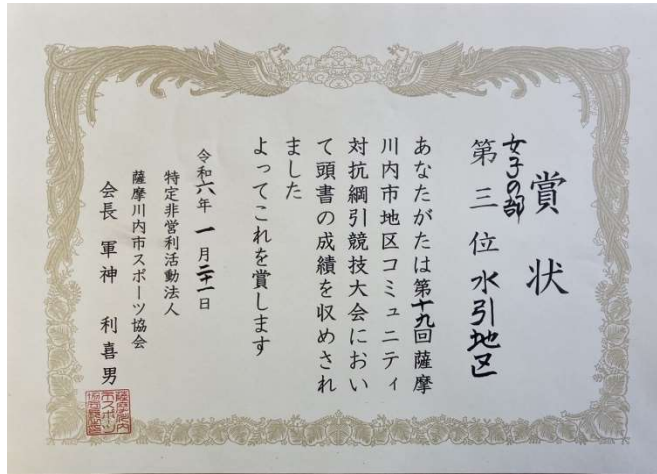 賞状
女子の部
第三位 水引地区
あなたがたは第十九回薩摩
川内市地区コミュニティ
対抗綱引競技大会におい
て頭書の成績を収めされ
ました
よってこれを賞します
令和六年一月二十一日
特定非営利活動法人
薩摩川内市スポーツ協会
会長 軍神 利喜男